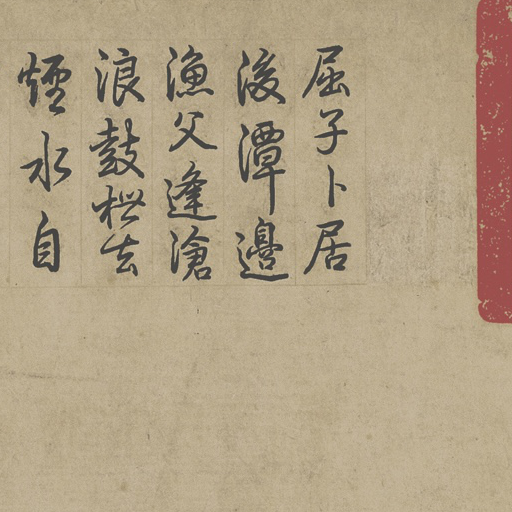 屈子卜居
後潭邊
漁父逢滄
浪鼓枻去
煙水自